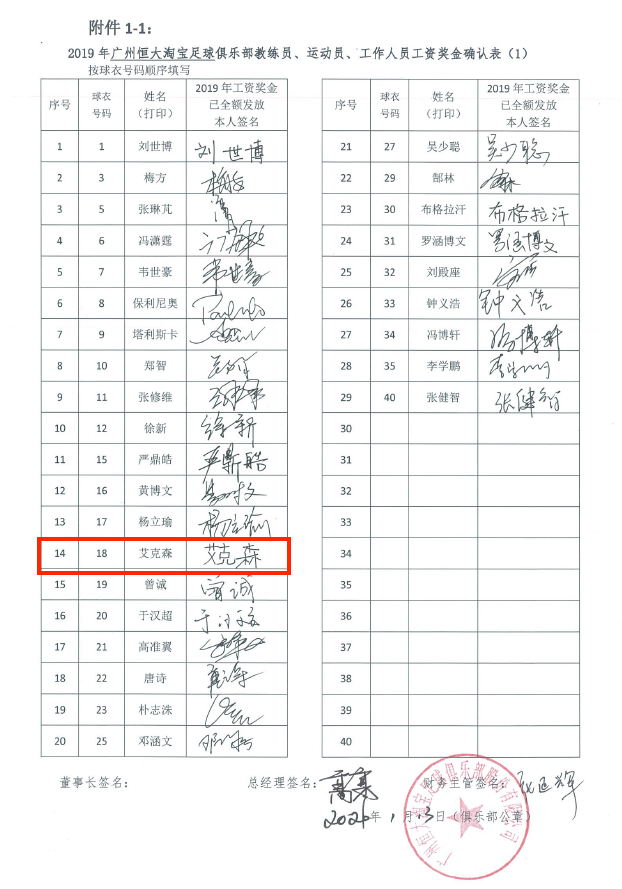 附件 1-1:
2019 年广州恒大淘宝足球俱乐部教练员、运动员、工作人员工资奖金确认表（1）
按球衣号码顺序填写
序号 球衣号码 姓名（打印） 2019 年工资奖金已全额发放本人签名
1 1 刘世博 刘世博
2 3 梅方 梅方
3 5 张琳芃
4 6 冯潇霆
5 7 韦世豪 韦世豪
6 8 保利尼奥
7 9 塔利斯卡
8 10 郑智
9 11 张修维
10 12 徐新 徐新
11 15 严鼎皓 严鼎皓
12 16 黄博文
13 17 杨立瑜 杨立瑜
14 18 艾克森 艾克森
15 19 曾诚 曾诚
16 20 于汉超 于汉超
17 21 高准翼
18 22 唐诗
19 23 朴志洙
20 25 邓涵文
序号 球衣号码 姓名（打印） 2019 年工资奖金已全额发放本人签名
21 27 吴少聪 吴少聪
22 29 郜林
23 30 布格拉汗 布格拉汗
24 31 罗涵博文 罗涵博文
25 32 刘殿座
26 33 钟义浩 钟义浩
27 34 冯博轩 冯博轩
28 35 李学鹏
29 40 张健智 张健智
30
31
32
33
34
35
36
37
38
39
40
董事长签名： 总经理签名： 财务主管签名：
2020 年 1 月 13 日（俱乐部公章）
广州恒大淘宝足球俱乐部股份有限公司